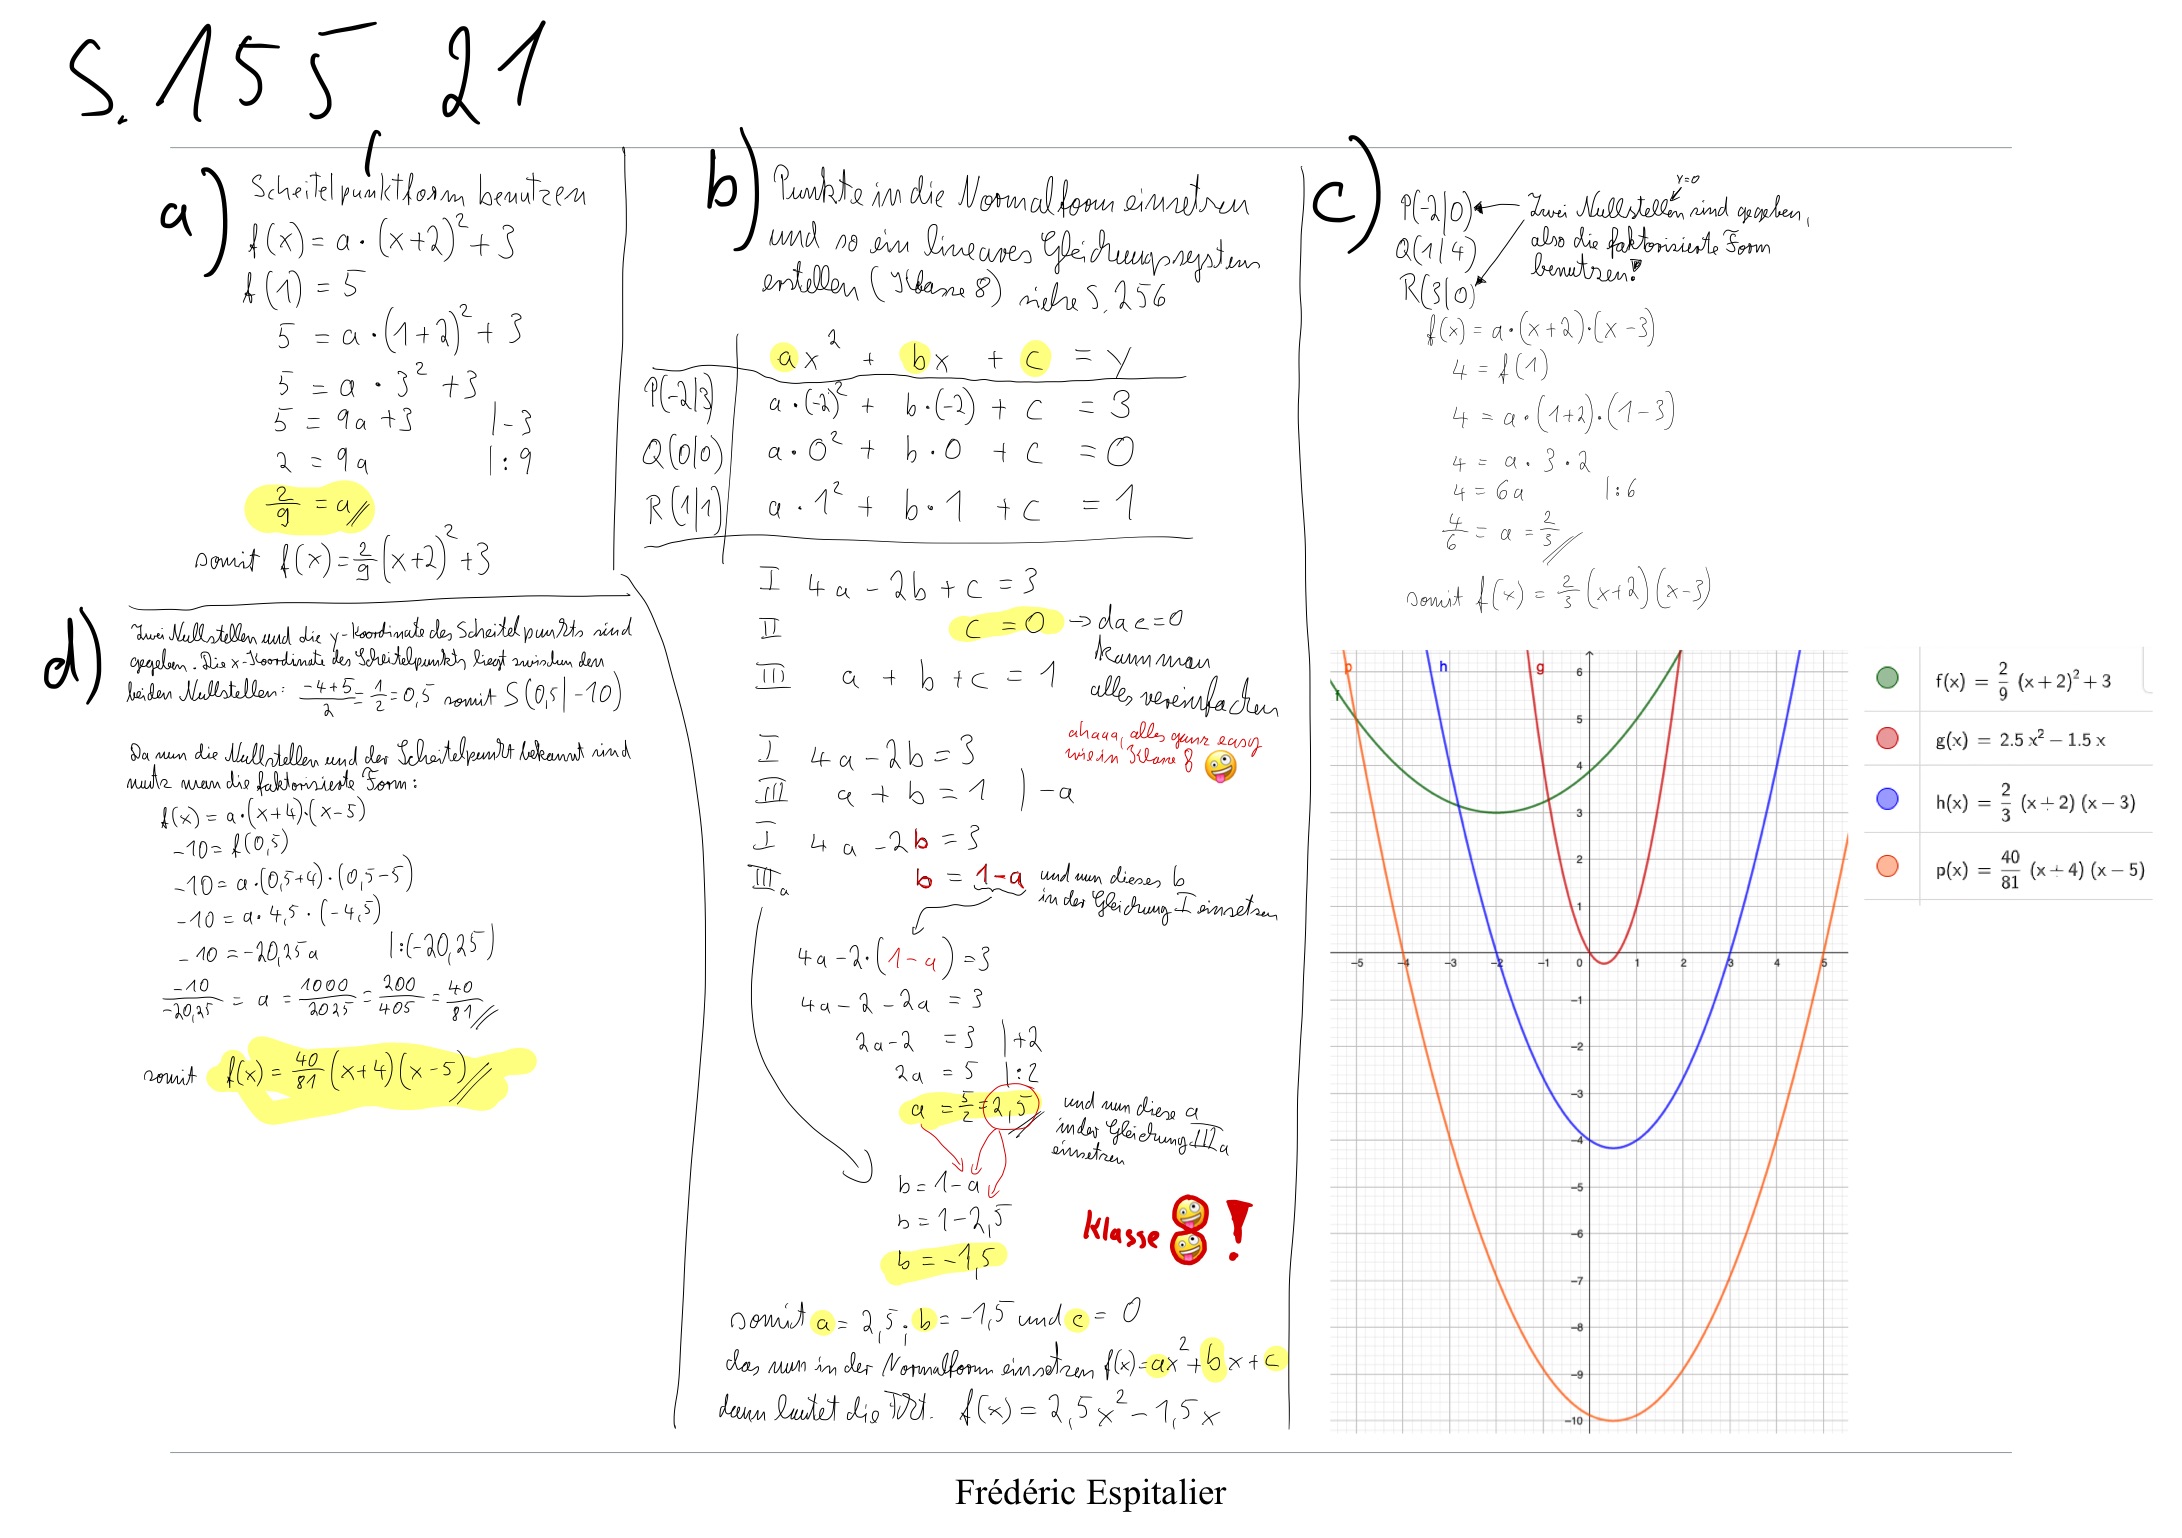 S. 155, 21
a) Scheitelpunktform benutzen
f(x) = a · (x+2)² + 3
f(1) = 5
5 = a · (1+2)² + 3
5 = a · 3² + 3
5 = 9a + 3 | -3
2 = 9a | : 9
2/9 = a
somit f(x) = 2/9 (x+2)² + 3
b) Punkte in die Normalform einsetzen
und so ein lineares Gleichungssystem
erstellen (Klasse 8) siehe S. 256
ax² + bx + c = y
P(-2|3) a · (-2)² + b · (-2) + c = 3
Q(0|0) a · 0² + b · 0 + c = 0
R(1|1) a · 1² + b · 1 + c = 1
I 4a - 2b + c = 3
II c = 0 → da c = 0
kann man
alles vereinfachen
III a + b + c = 1
ahaaa, alles ganz easy
wie in Klasse 8 🤪
I 4a - 2b = 3
III a + b = 1 | -a
I 4a - 2b = 3
IIIa b = 1-a und nun dieses b
in der Gleichung I einsetzen
4a - 2 · (1-a) = 3
4a - 2 - 2a = 3
2a - 2 = 3 | +2
2a = 5 | : 2
a = 5/2 = 2,5
und nun diese a
in der Gleichung IIIa
einsetzen
b = 1-a
b = 1-2,5
b = -1,5
Klasse 8 !
somit a = 2,5 ; b = -1,5 und c = 0
das nun in der Normalform einsetzen f(x) = ax² + bx + c
dann lautet die Fkt. f(x) = 2,5x² - 1,5x
c) P(-2|0)
Q(1|4)
R(3|0)
y=0
Zwei Nullstellen sind gegeben,
also die faktorisierte Form
benutzen!
f(x) = a · (x+2) · (x-3)
4 = f(1)
4 = a · (1+2) · (1-3)
4 = a · 3 · 2
4 = 6a | : 6
4/6 = a = 2/3
somit f(x) = 2/3 (x+2) (x-3)
d) Zwei Nullstellen und die y-Koordinate des Scheitelpunkts sind
gegeben. Die x-Koordinate des Scheitelpunkts liegt zwischen den
beiden Nullstellen: (-4+5)/2 = 1/2 = 0,5 somit S(0,5|-10)
Da nun die Nullstellen und der Scheitelpunkt bekannt sind
nutz man die faktorisierte Form:
f(x) = a · (x+4) · (x-5)
-10 = f(0,5)
-10 = a · (0,5+4) · (0,5-5)
-10 = a · 4,5 · (-4,5)
-10 = -20,25a | : (-20,25)
-10/-20,25 = a = 1000/2025 = 200/405 = 40/81
somit f(x) = 40/81 (x+4) (x-5)
f p h g
6
5
4
3
2
1
-5 -4 -3 -2 -1 0 1 2 3 4 5
-1
-2
-3
-4
-5
-6
-7
-8
-9
-10
f(x) = 2/9 (x+2)² + 3
g(x) = 2.5 x² − 1.5 x
h(x) = 2/3 (x+2) (x−3)
p(x) = 40/81 (x+4) (x−5)
Frédéric Espitalier